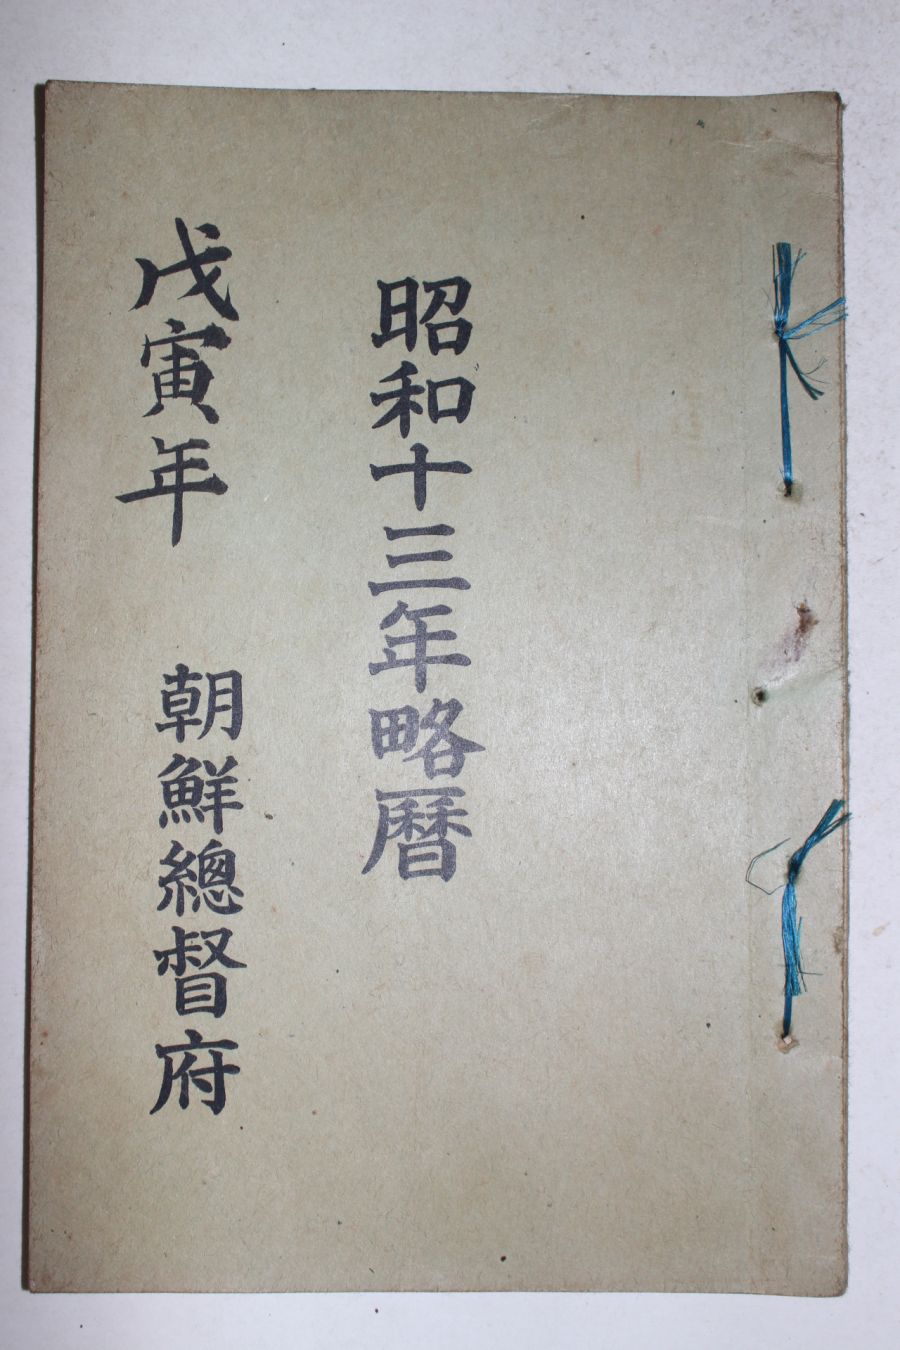 昭和十三年略曆
戊寅年 朝鮮總督府